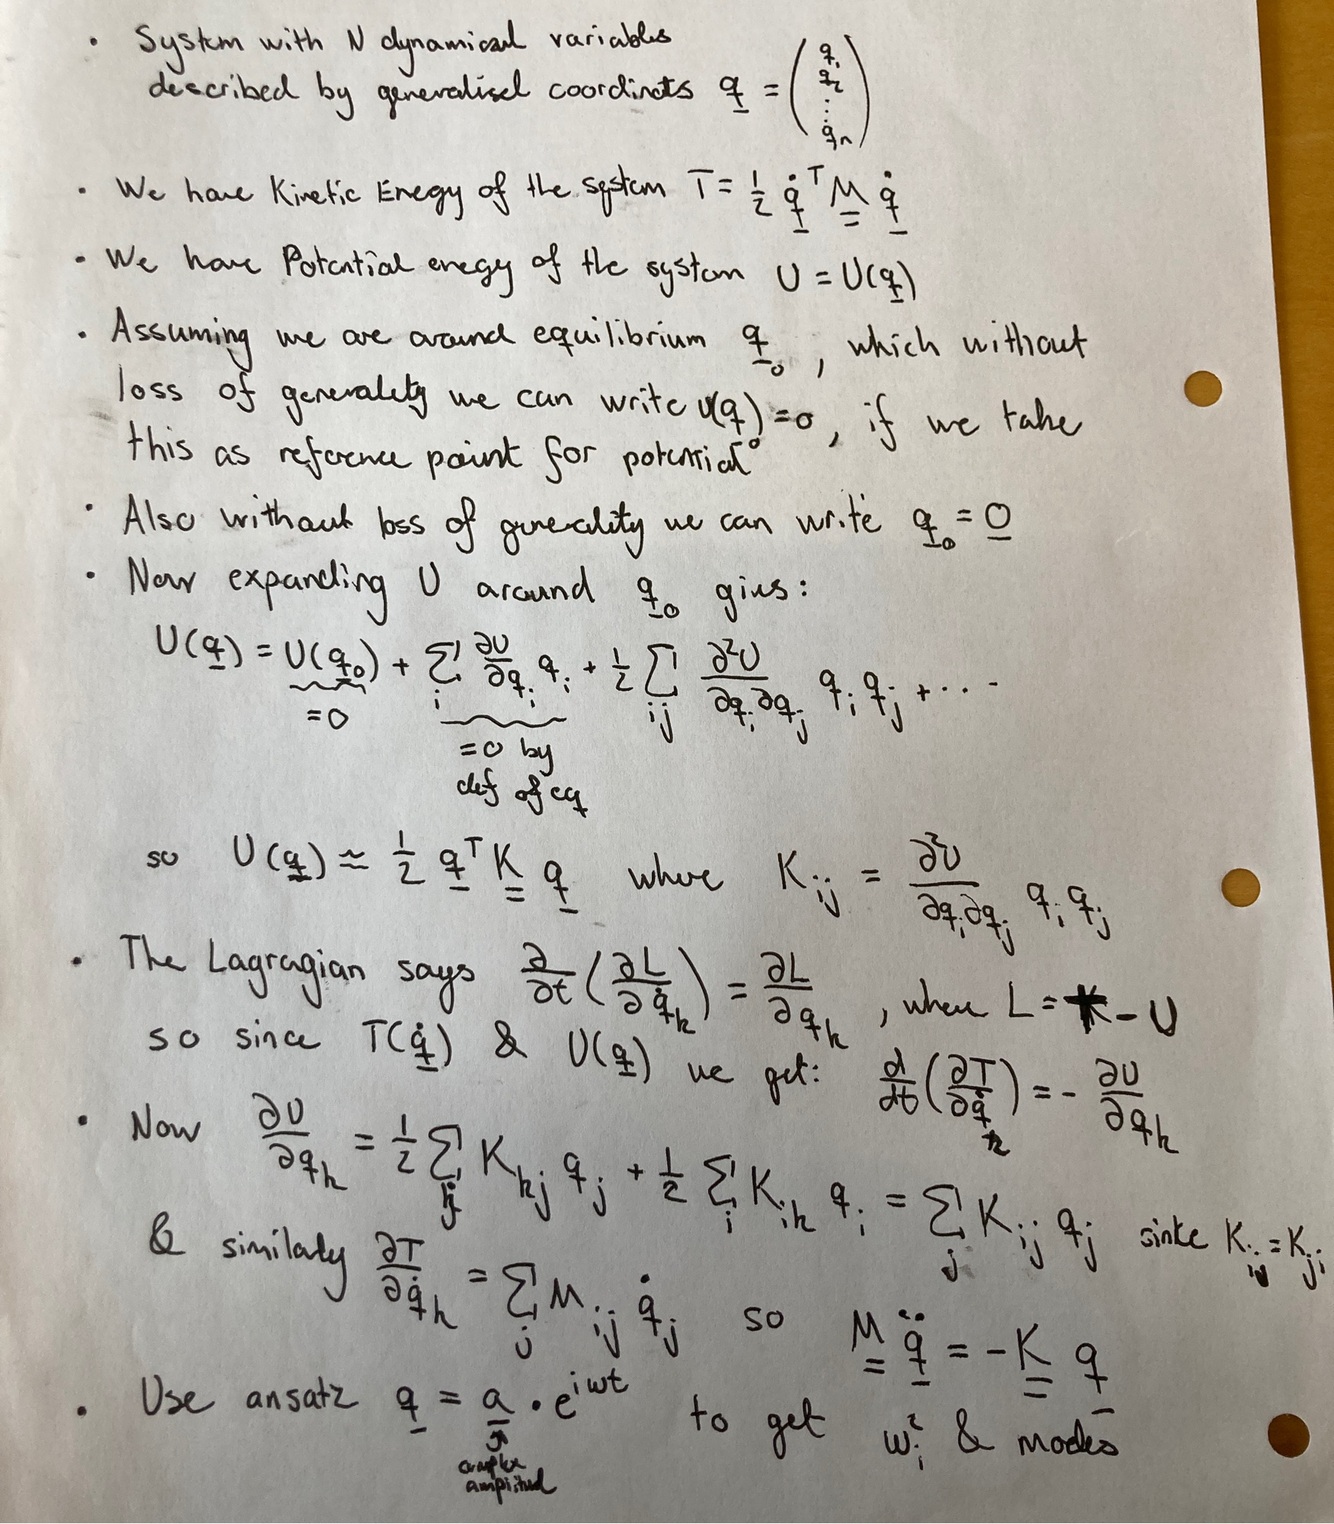 • System with N dynamical variables
described by generalised coordinates q = (q₁ q₂ ⋮ qₙ)
• We have Kinetic Enegy of the system T = ½ q̇ᵀ M q̇
• We have Potential enegy of the system U = U(q)
• Assuming we are around equilibrium q₀, which without
loss of generality we can write U(q₀) = 0, if we take
this as reference point for potential
• Also without loss of generality we can write q₀ = 0
• Now expanding U around q₀ gives:
U(q) = U(q₀) + Σᵢ ∂U/∂qᵢ qᵢ + ½ Σᵢⱼ ∂²U/∂qᵢ∂qⱼ qᵢ qⱼ + ...
=0
=0 by
def of eq
so U(q) ≈ ½ qᵀ K q where Kᵢⱼ = ∂²U/∂qᵢ∂qⱼ qᵢ qⱼ
• The Lagragian says ∂/∂t (∂L/∂q̇ₖ) = ∂L/∂qₖ, where L = K - U
so since T(q̇) & U(q) we get: d/dt (∂T/∂q̇ₖ) = - ∂U/∂qₖ
• Now ∂U/∂qₖ = ½ Σⱼ Kₖⱼ qⱼ + ½ Σᵢ Kᵢₖ qᵢ = Σⱼ Kᵢⱼ qⱼ since Kᵢⱼ = Kⱼᵢ
& similarly ∂T/∂q̇ₖ = Σⱼ Mᵢⱼ q̇ⱼ so M q̈ = -K q
• Use ansatz q = a · e^{iωt} to get ωᵢ² & modes
complex